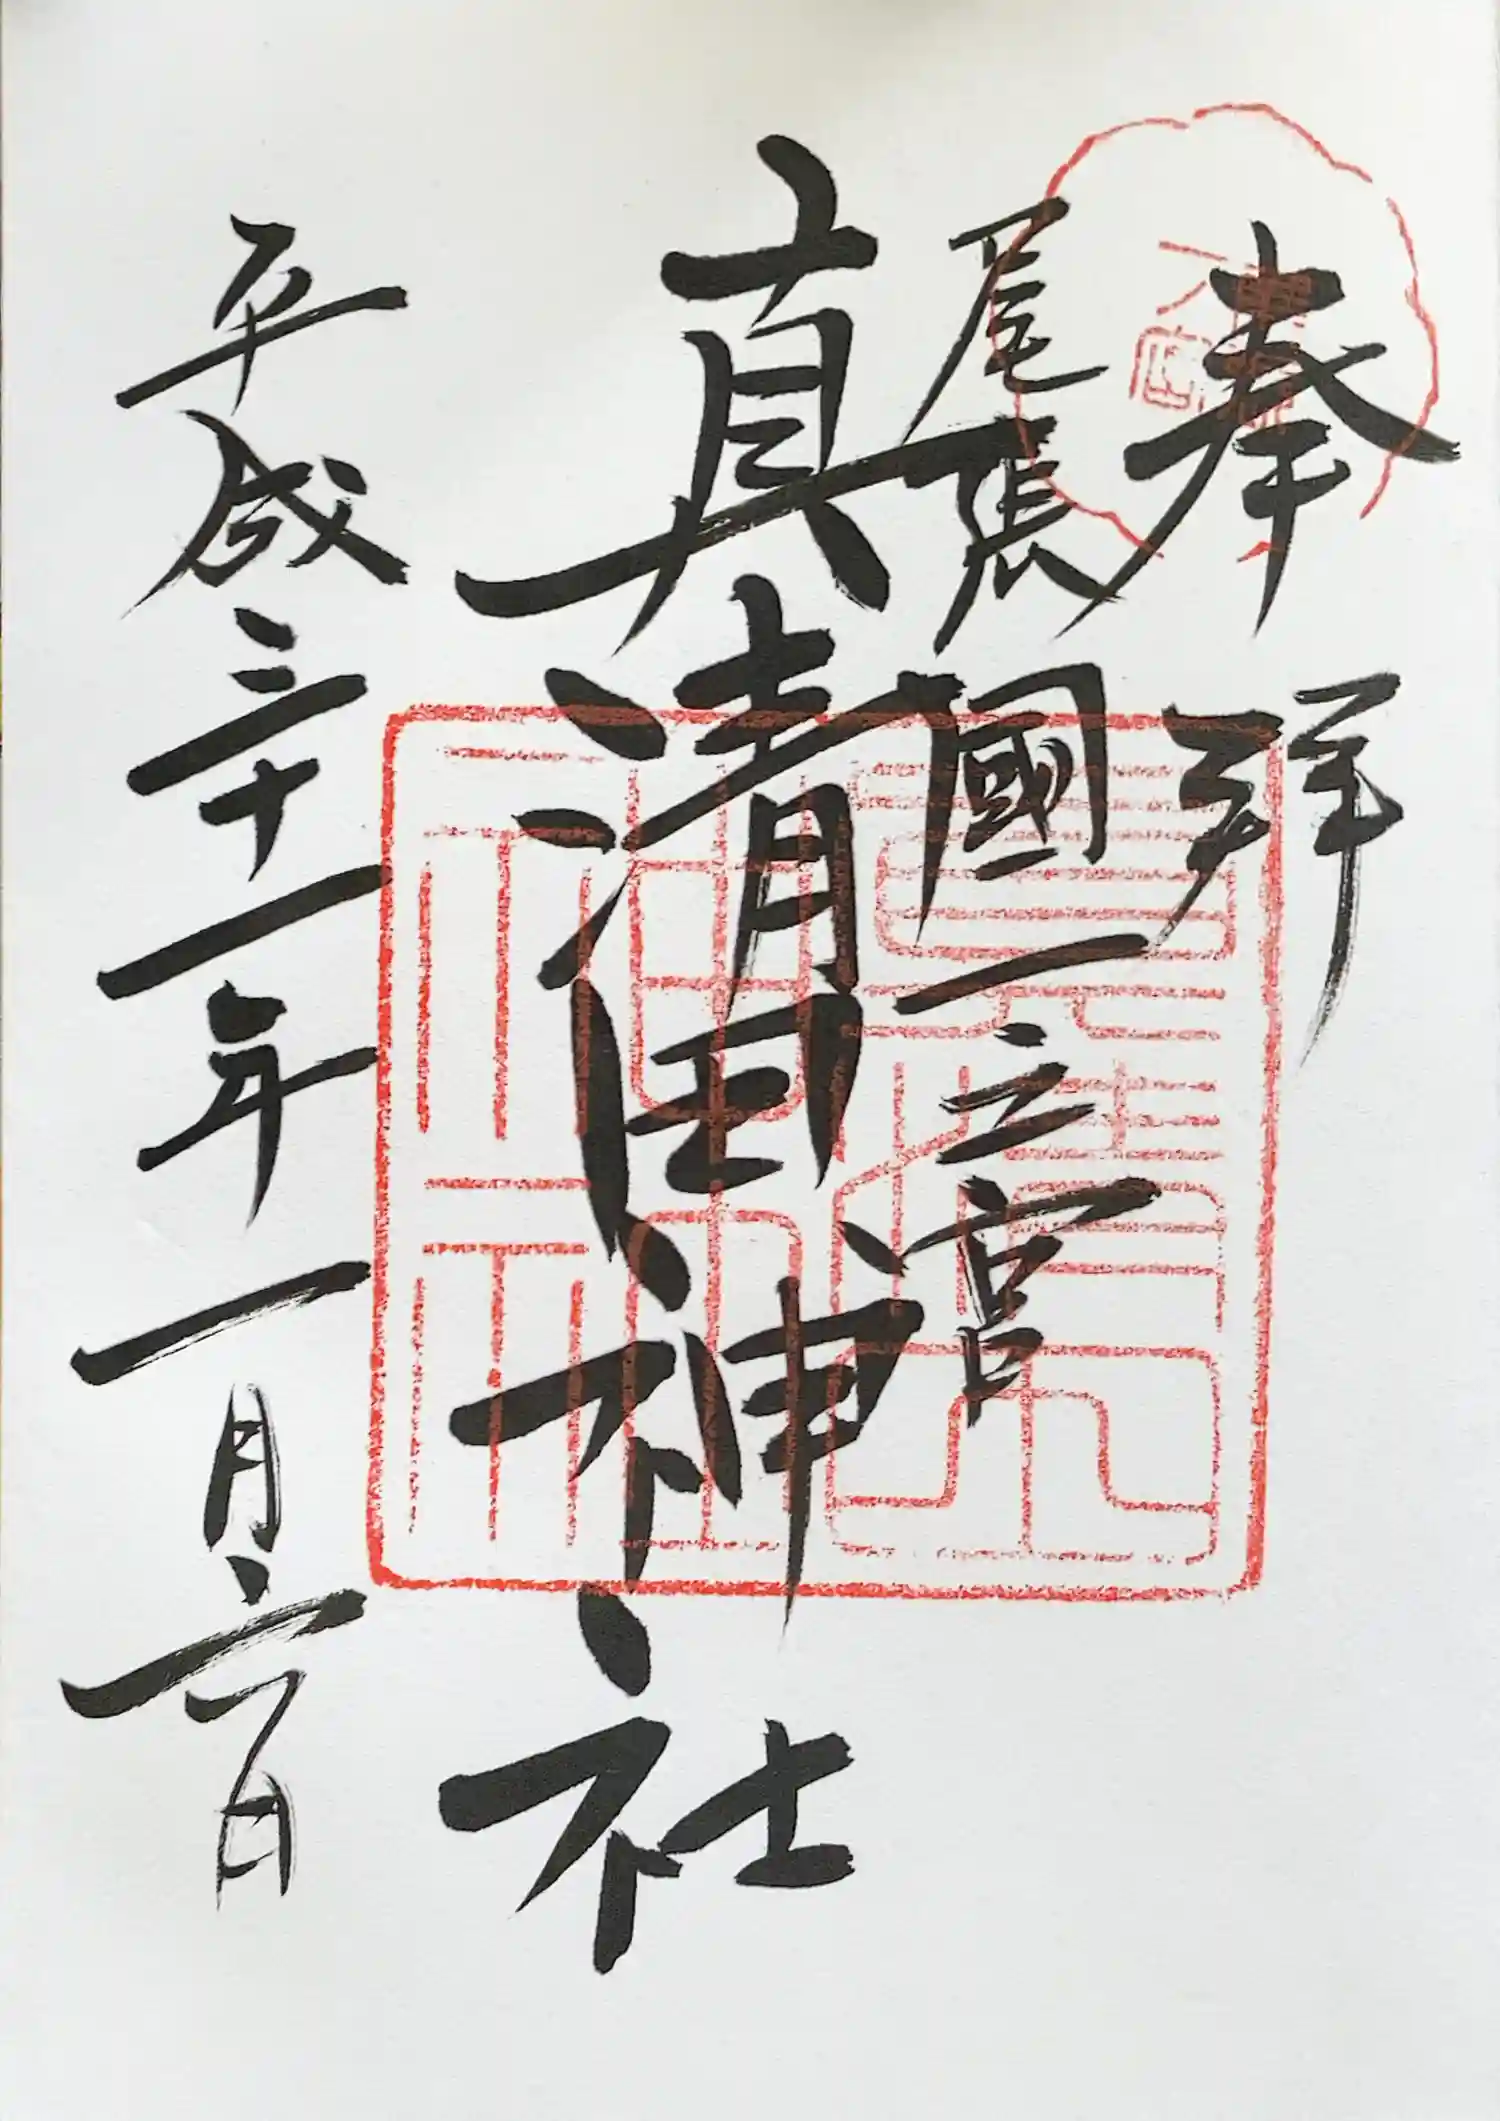 奉拜
尾張國一之宮
真清田神社
平成三十一年一月六日